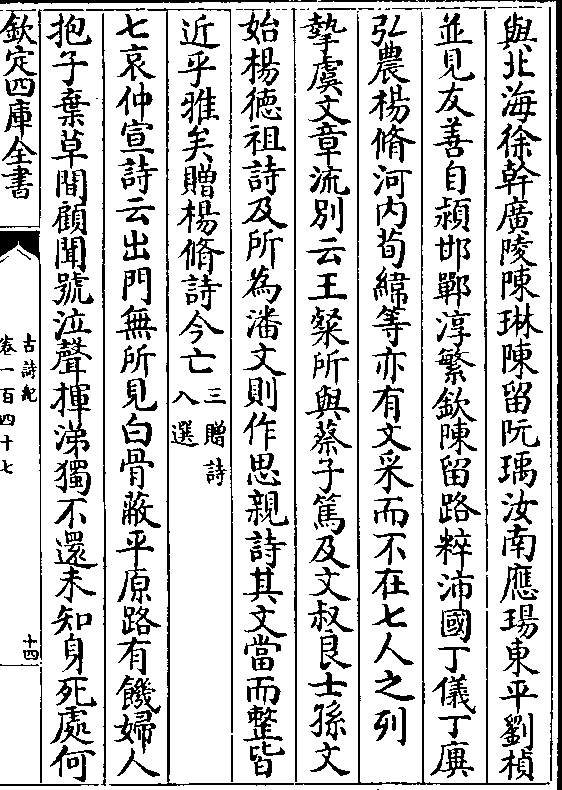 與北海徐幹廣陵陳琳陳留阮瑀汝南應瑒東平劉楨
並見友善自潁邯鄲淳繁欽陳留路粹沛國丁儀丁廙
弘農楊脩河內荀緯等亦有文采而不在七人之列
摯虞文章流別云王粲所與蔡子篤及文叔良士孫文
始楊德祖詩及所為潘文則作思親詩其文當而整皆
近乎雅矣贈楊脩詩今亡三贈詩
入選
七哀仲宣詩云出門無所見白骨蔽平原路有饑婦人
抱子棄草間顧聞號泣聲揮涕獨不還未知身死處何
欽定四庫全書
古詩紀
卷一百四十七
十四